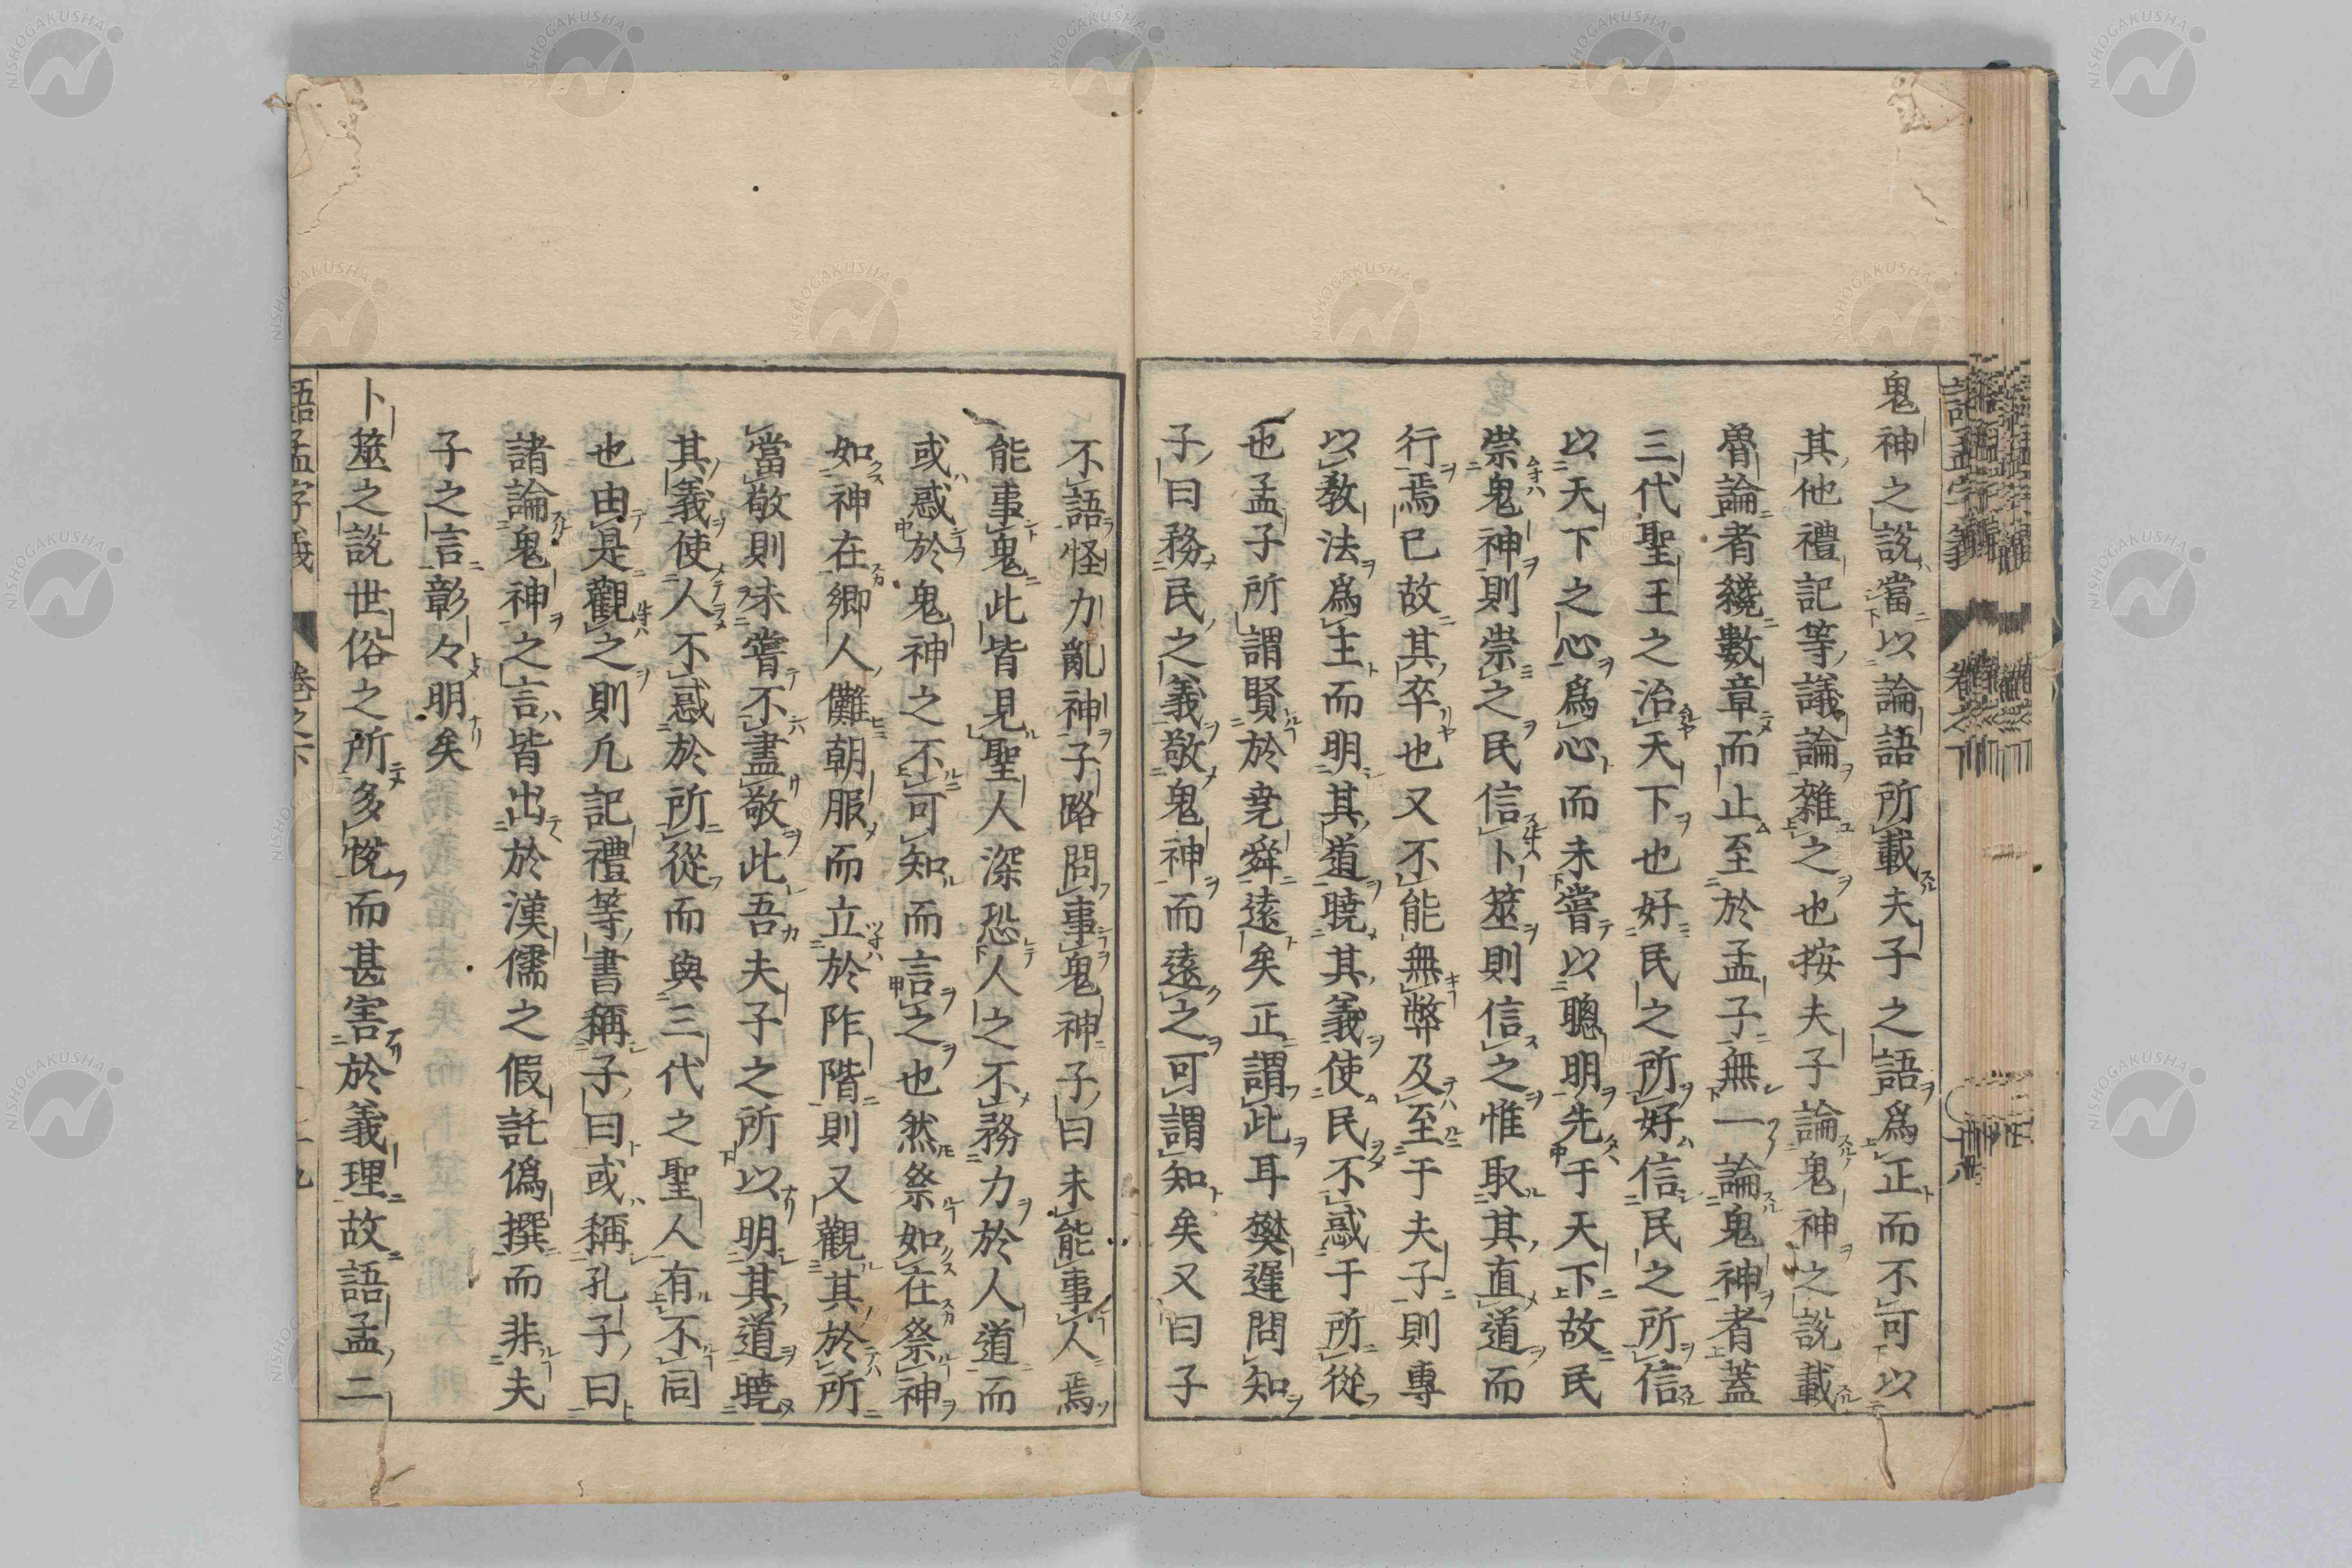 鬼神之說當以論語所載夫子之語爲正而不可以
其他禮記等議論雜之也按夫子論鬼神之說載
魯論者纔數章而止至於孟子無一論鬼神者蓋
三代聖王之治天下也好民之所好信民之所信
以天下之心爲心而未嘗以聰明先于天下故民
崇鬼神則崇之民信卜筮則信之惟取其直道而
行焉已故其卒也又不能無弊及至于夫子則專
以敎法爲主而明其道曉其義使民不惑于所從
也孟子所謂賢於堯舜遠矣正謂此耳樊遲問知
子曰務民之義敬鬼神而遠之可謂知矣又曰子
不語怪力亂神子路問事鬼神子曰未能事人焉
能事鬼此皆見聖人深恐人之不務力於人道而
或惑於鬼神之不可知而言之也然祭如在祭神
如神在鄉人儺朝服而立於阼階則又觀其於所
當敬則未嘗不盡敬此吾夫子之所以明其道曉
其義使人不惑於所從而與三代之聖人有不同
也由是觀之則凡記禮等書稱子曰或稱孔子曰
諸論鬼神之言皆出於漢儒之假託僞撰而非夫
子之言彰々明矣
卜筮之說世俗之所多悅而甚害於義理故語孟二
語孟字義
卷之下